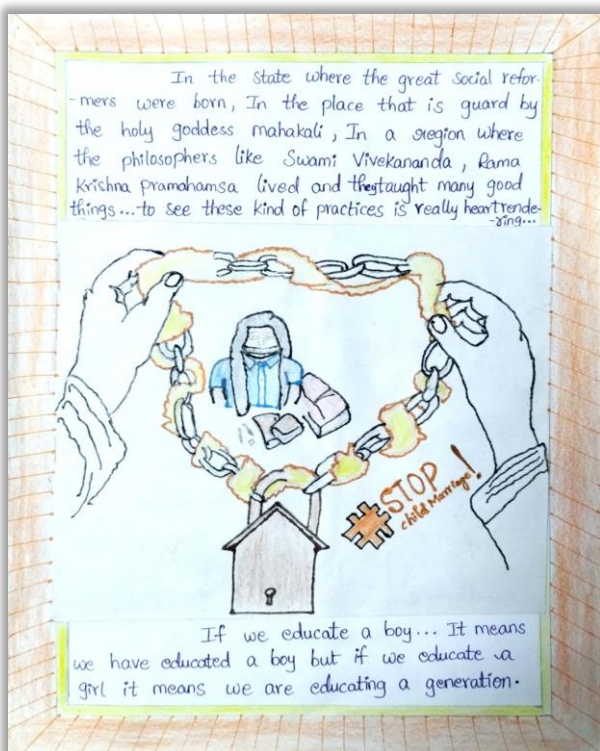 In the state where the great social refor-
-mers were born, In the place that is guard by
the holy goddess mahakali, In a region where
the philosophers like Swami Vivekananda, Rama
Krishna pramahamsa lived and they taught many good
things...to see these kind of practices is really heartrende-
-ring...
#STOP
child Marriage!
If we educate a boy... It means
we have educated a boy but if we educate a
girl it means we are educating a generation.